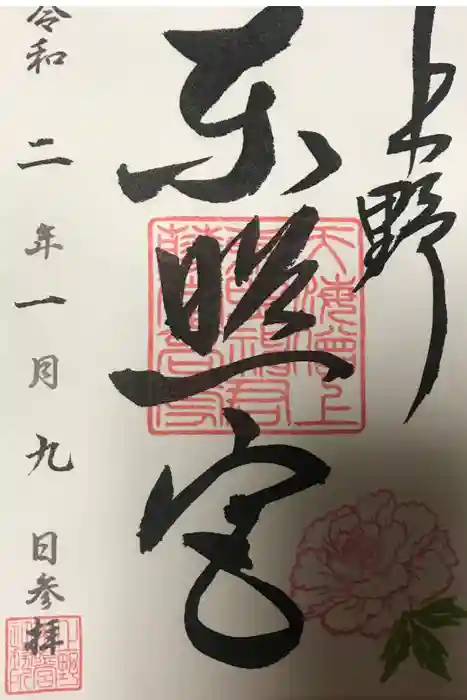 上野
東照宮
令和二年一月九日参拝